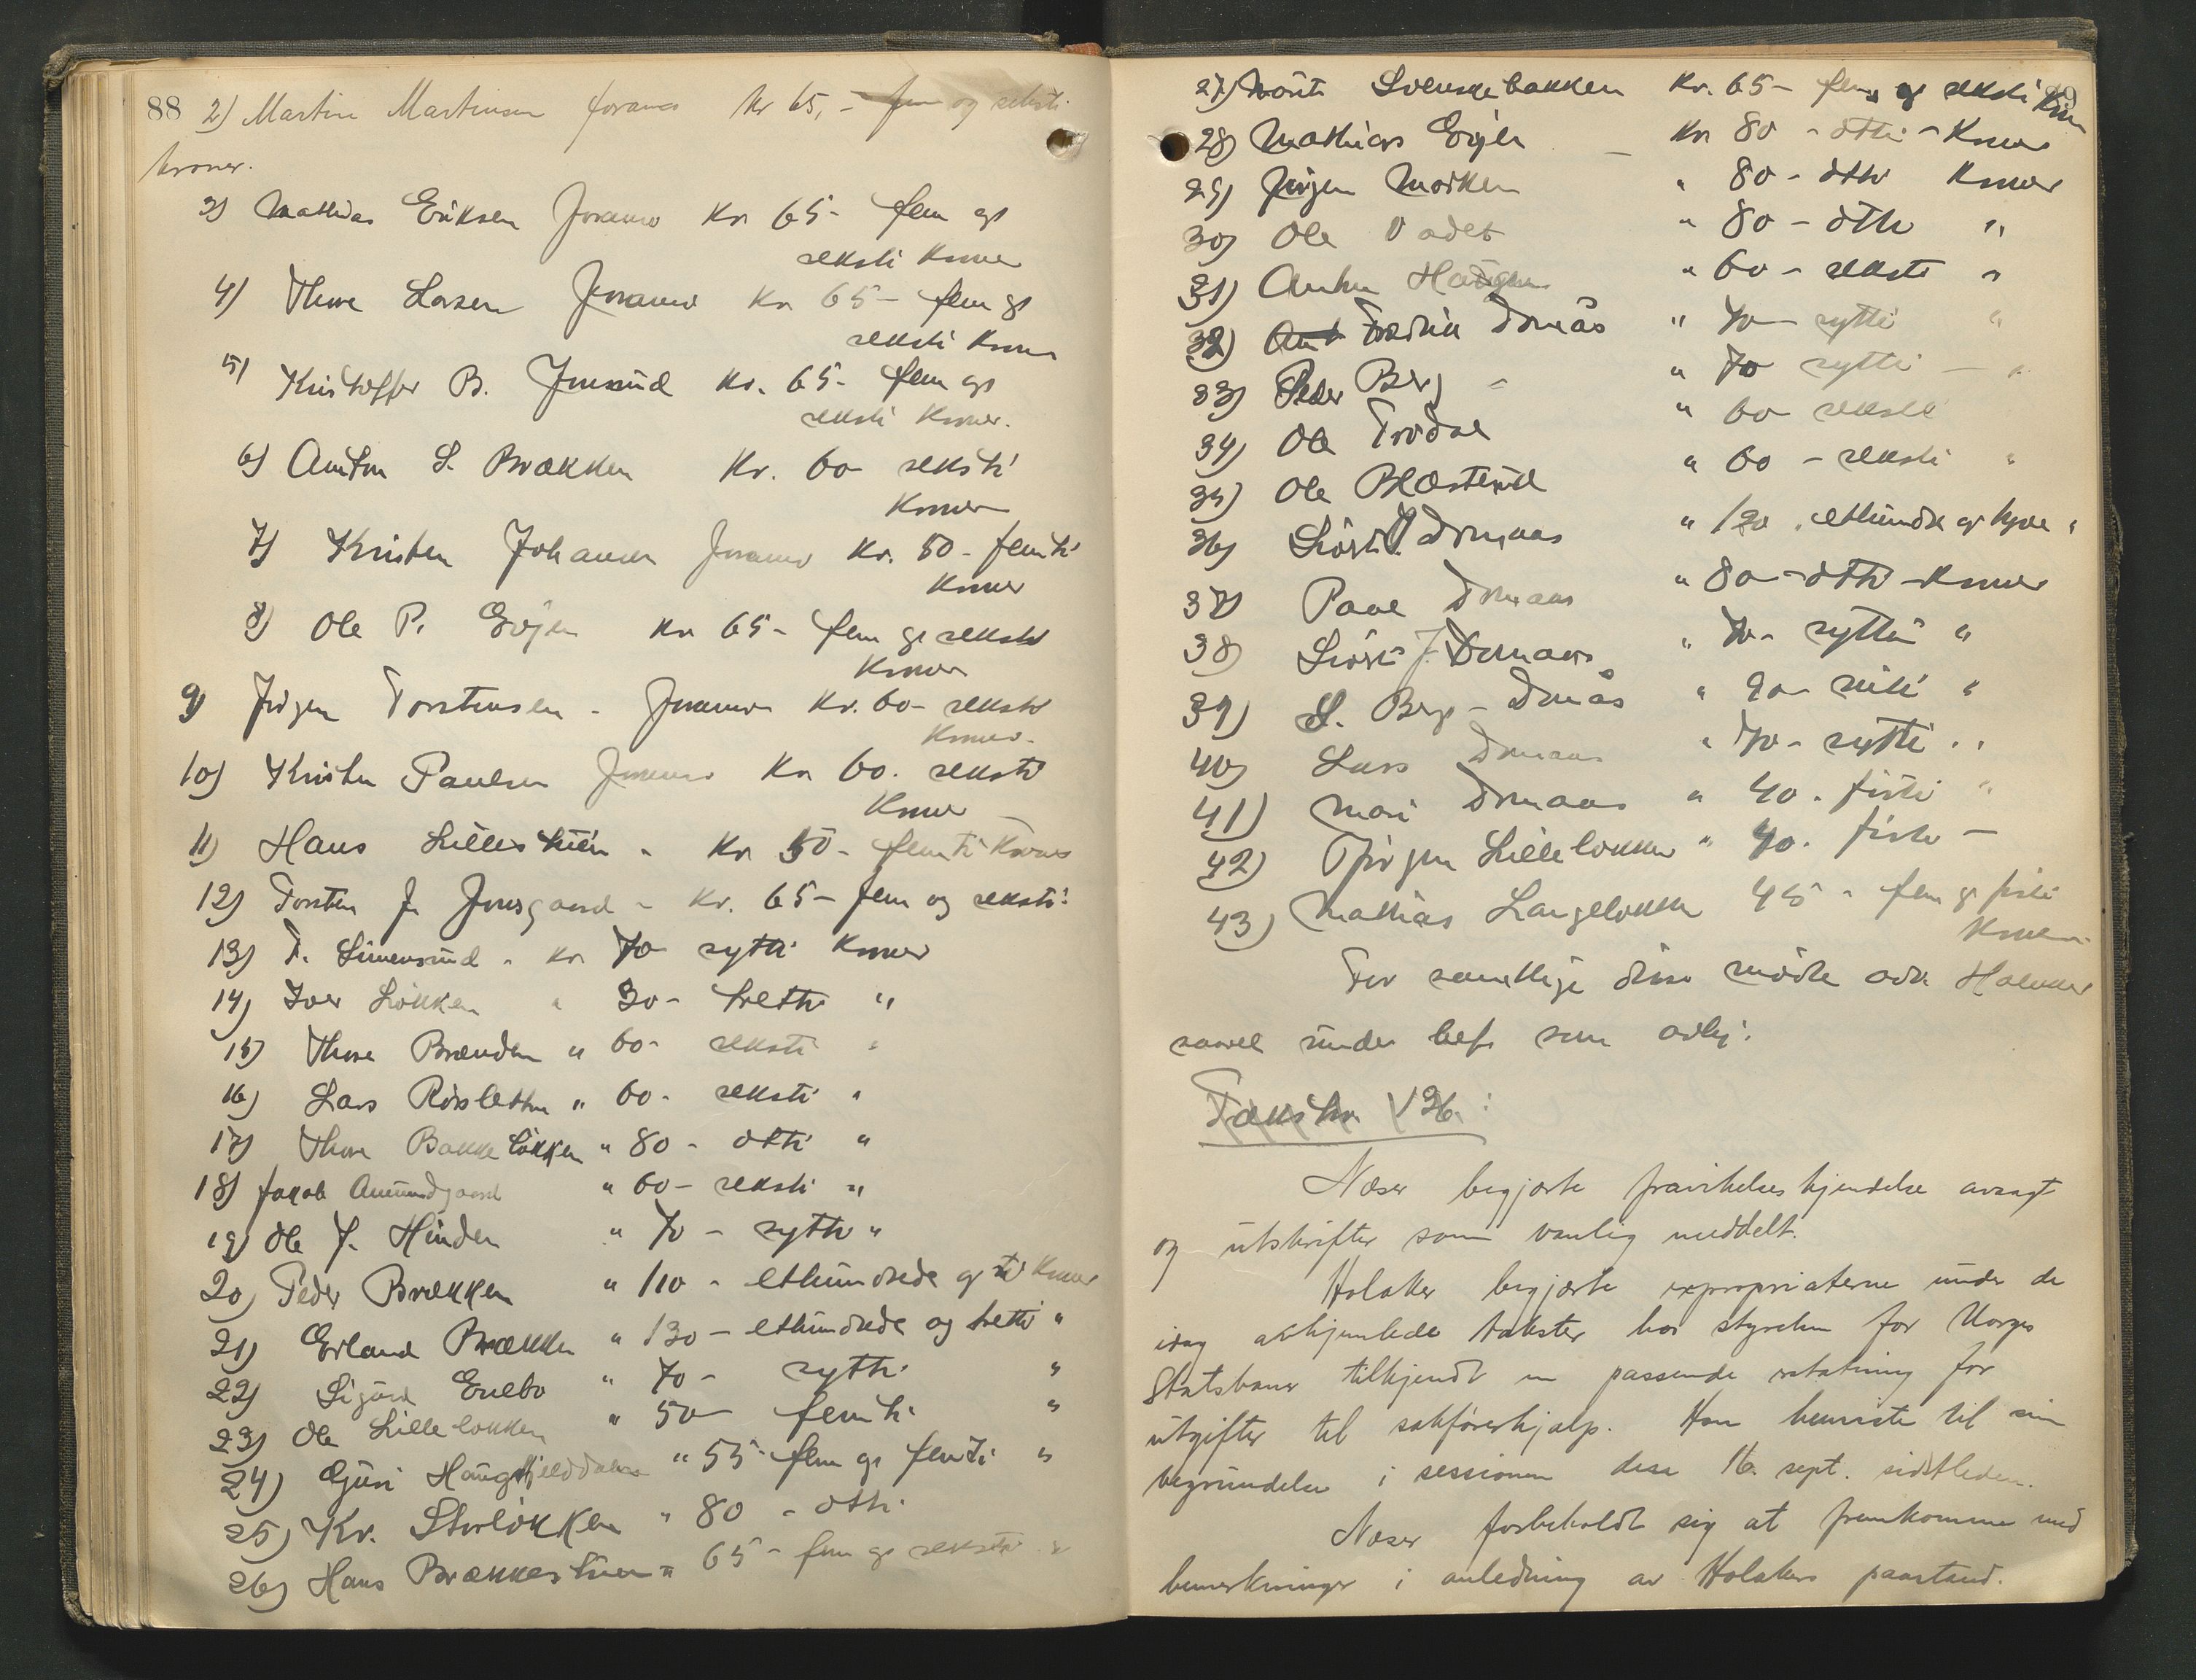 88 2) Martin Martinsen Joramo Kr 65,- fem og seksti
kroner.
3) Mathias Eriksen Joramo Kr 65- fem og
seksti Kroner
4) Thore Larsen Joramo Kr 65- fem og
seksti Kroner
5) Kristoffer B. Kr. 65- fem og
seksti Kroner.
6) Anton S. Brækken Kr. 60 seksti
Kroner
7) Kristen Johansen Joramo Kr. 50- femti
Kroner
8) Ole P. Evjen Kr 65- fem og seksti
Kroner
9) Jørgen Torstensen - Joramo Kr. 60- seksti
Kroner.
10) Kristen Paulsen Joramo Kr 60. seksti
Kroner
11) Hans Lillestuen - Kr 50- femti Kroner
12) Torsten J. Jonsgaard - Kr. 65- fem og seksti
13) T. Simensrud - Kr 70 sytti Kroner
14) Iver Løkken " 30- tretti "
15) Thore Brænden " 60- seksti "
16) Lars Røisletten " 60- seksti "
17) Thore Bakkeløkken " 80- otti "
18) Jakob Amundgaard " 60- seksti "
19) Ole J. Hinden " 70- sytti "
20) Peder Brækken " 110- ethundrede og ti Kroner
21) Erland Brækken " 130- ethundrede og tretti "
22) Sigurd Enebo " 70- sytti "
23) Ole Lilleløkken " 50- femti "
24) Guri " 55- fem og femti "
25) Kr. Storløkken " 80- otti
26) Hans Brækkestuen " 65- fem og seksti "
27) Svenskebakken Kr. 65- fem og seksti Kroner 89
28) Mathias Evjen - Kr 80- otti - Kroner
29) Jørgen Morken " 80- otti Kroner
30) Ole Vadet " 80- otti "
31) Haugen " 60- seksti "
32) Fredrik Domås " 70- sytti "
33) Peder Berg - " 70 sytti - "
34) Ole Trødal " 60 seksti
35) Ole Blæsterud " 60- seksti "
36) Domaas " 120, ethundre og tyve "
37) Paul Domaas " 80- otti - Kroner
38) J. Domaas " 70- sytti "
39) S. Berg - Domås " 90- nitti "
40) Lars Domaas " 70- sytti "
41) Mari Domaas " 40. førti "
42) Jørgen Lilleløkken " 40. førti -
43) Mathias Langeløkken 45- fem og førti
Kroner.
For samtlige disse møtte adv. Holaker
saavel under bef. som avhj.
Takst nr. 126:
Næser begjærte fravikelseskjendelse avsagt
og utskrifter som vanlig meddelt.
Holaker begjærte expropriaterne under de
idag avhjemlede takster hos styrelsen for Norges
Statsbaner tilkjendt en passende erstatning for
utgifter til sakførerhjælp. Han henviste til sin
begrundelse i sessionen dese 16. sept. sidstleden.
Næser forbeholdt sig at fremkomme med
bemerkninger i anledning av Holakers paastand.